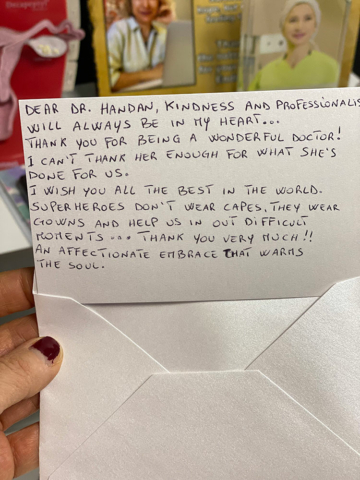 DEAR DR. HANDAN, KINDNESS AND PROFESSIONALIS
WILL ALWAYS BE IN MY HEART...
THANK YOU FOR BEING A WONDERFUL DOCTOR!
I CAN'T THANK HER ENOUGH FOR WHAT SHE'S
DONE FOR US.
I WISH YOU ALL THE BEST IN THE WORLD.
SUPERHEROES DON'T WEAR CAPES, THEY WEAR
GOWNS AND HELP US IN OUT DIFFICULT
MOMENTS... THANK YOU VERY MUCH!!
AN AFFECTIONATE EMBRACE THAT WARMS
THE SOUL.